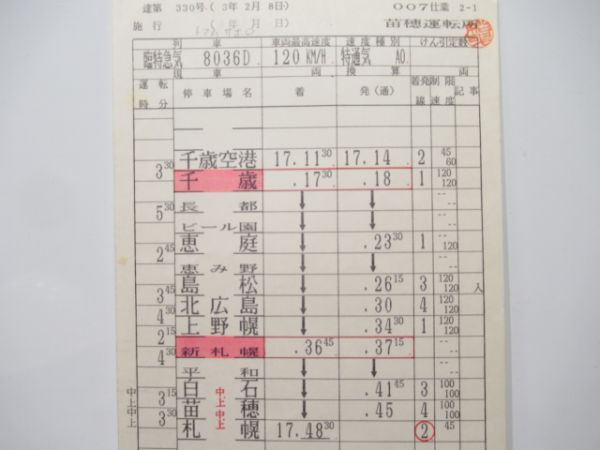 達第 330号 ( 3年 2月 8日) 007仕業 2-1
施行 ( 年 月 日) 苗穂運転所
トマム サホロ
列車 車両最高速度 速度種別 けん引定数
臨特急気 8036D 120 KM/H 特通気 A0
現車 両 換算 両
運転時分 停車場名 着 発(通) 着発線 制限速度 記事
千歳空港 17.11 30 17.14 2 45 60
3 30 千歳 .17 30 .18 1 120 120
長都 ↓ ↓ --
5 30 ビール園 ↓ ↓ --
恵庭 ↓ .23 30 1 -- 120
恵み野 ↓ ↓ --
島松 ↓ .26 15 3 120 120 入
3 45 北広島 ↓ .30 4 120 120
4 30 上野幌 ↓ .34 30 1 120 120
2 15 新札幌 .36 45 .37 15 --
4 30 平和 ↓ ↓ --
中上 3 15 白石 中上 ↓ .41 45 3 100 100
中上 3 30 苗穂 中上 ↓ .45 4 100 100
札幌 17.48 30 2 45